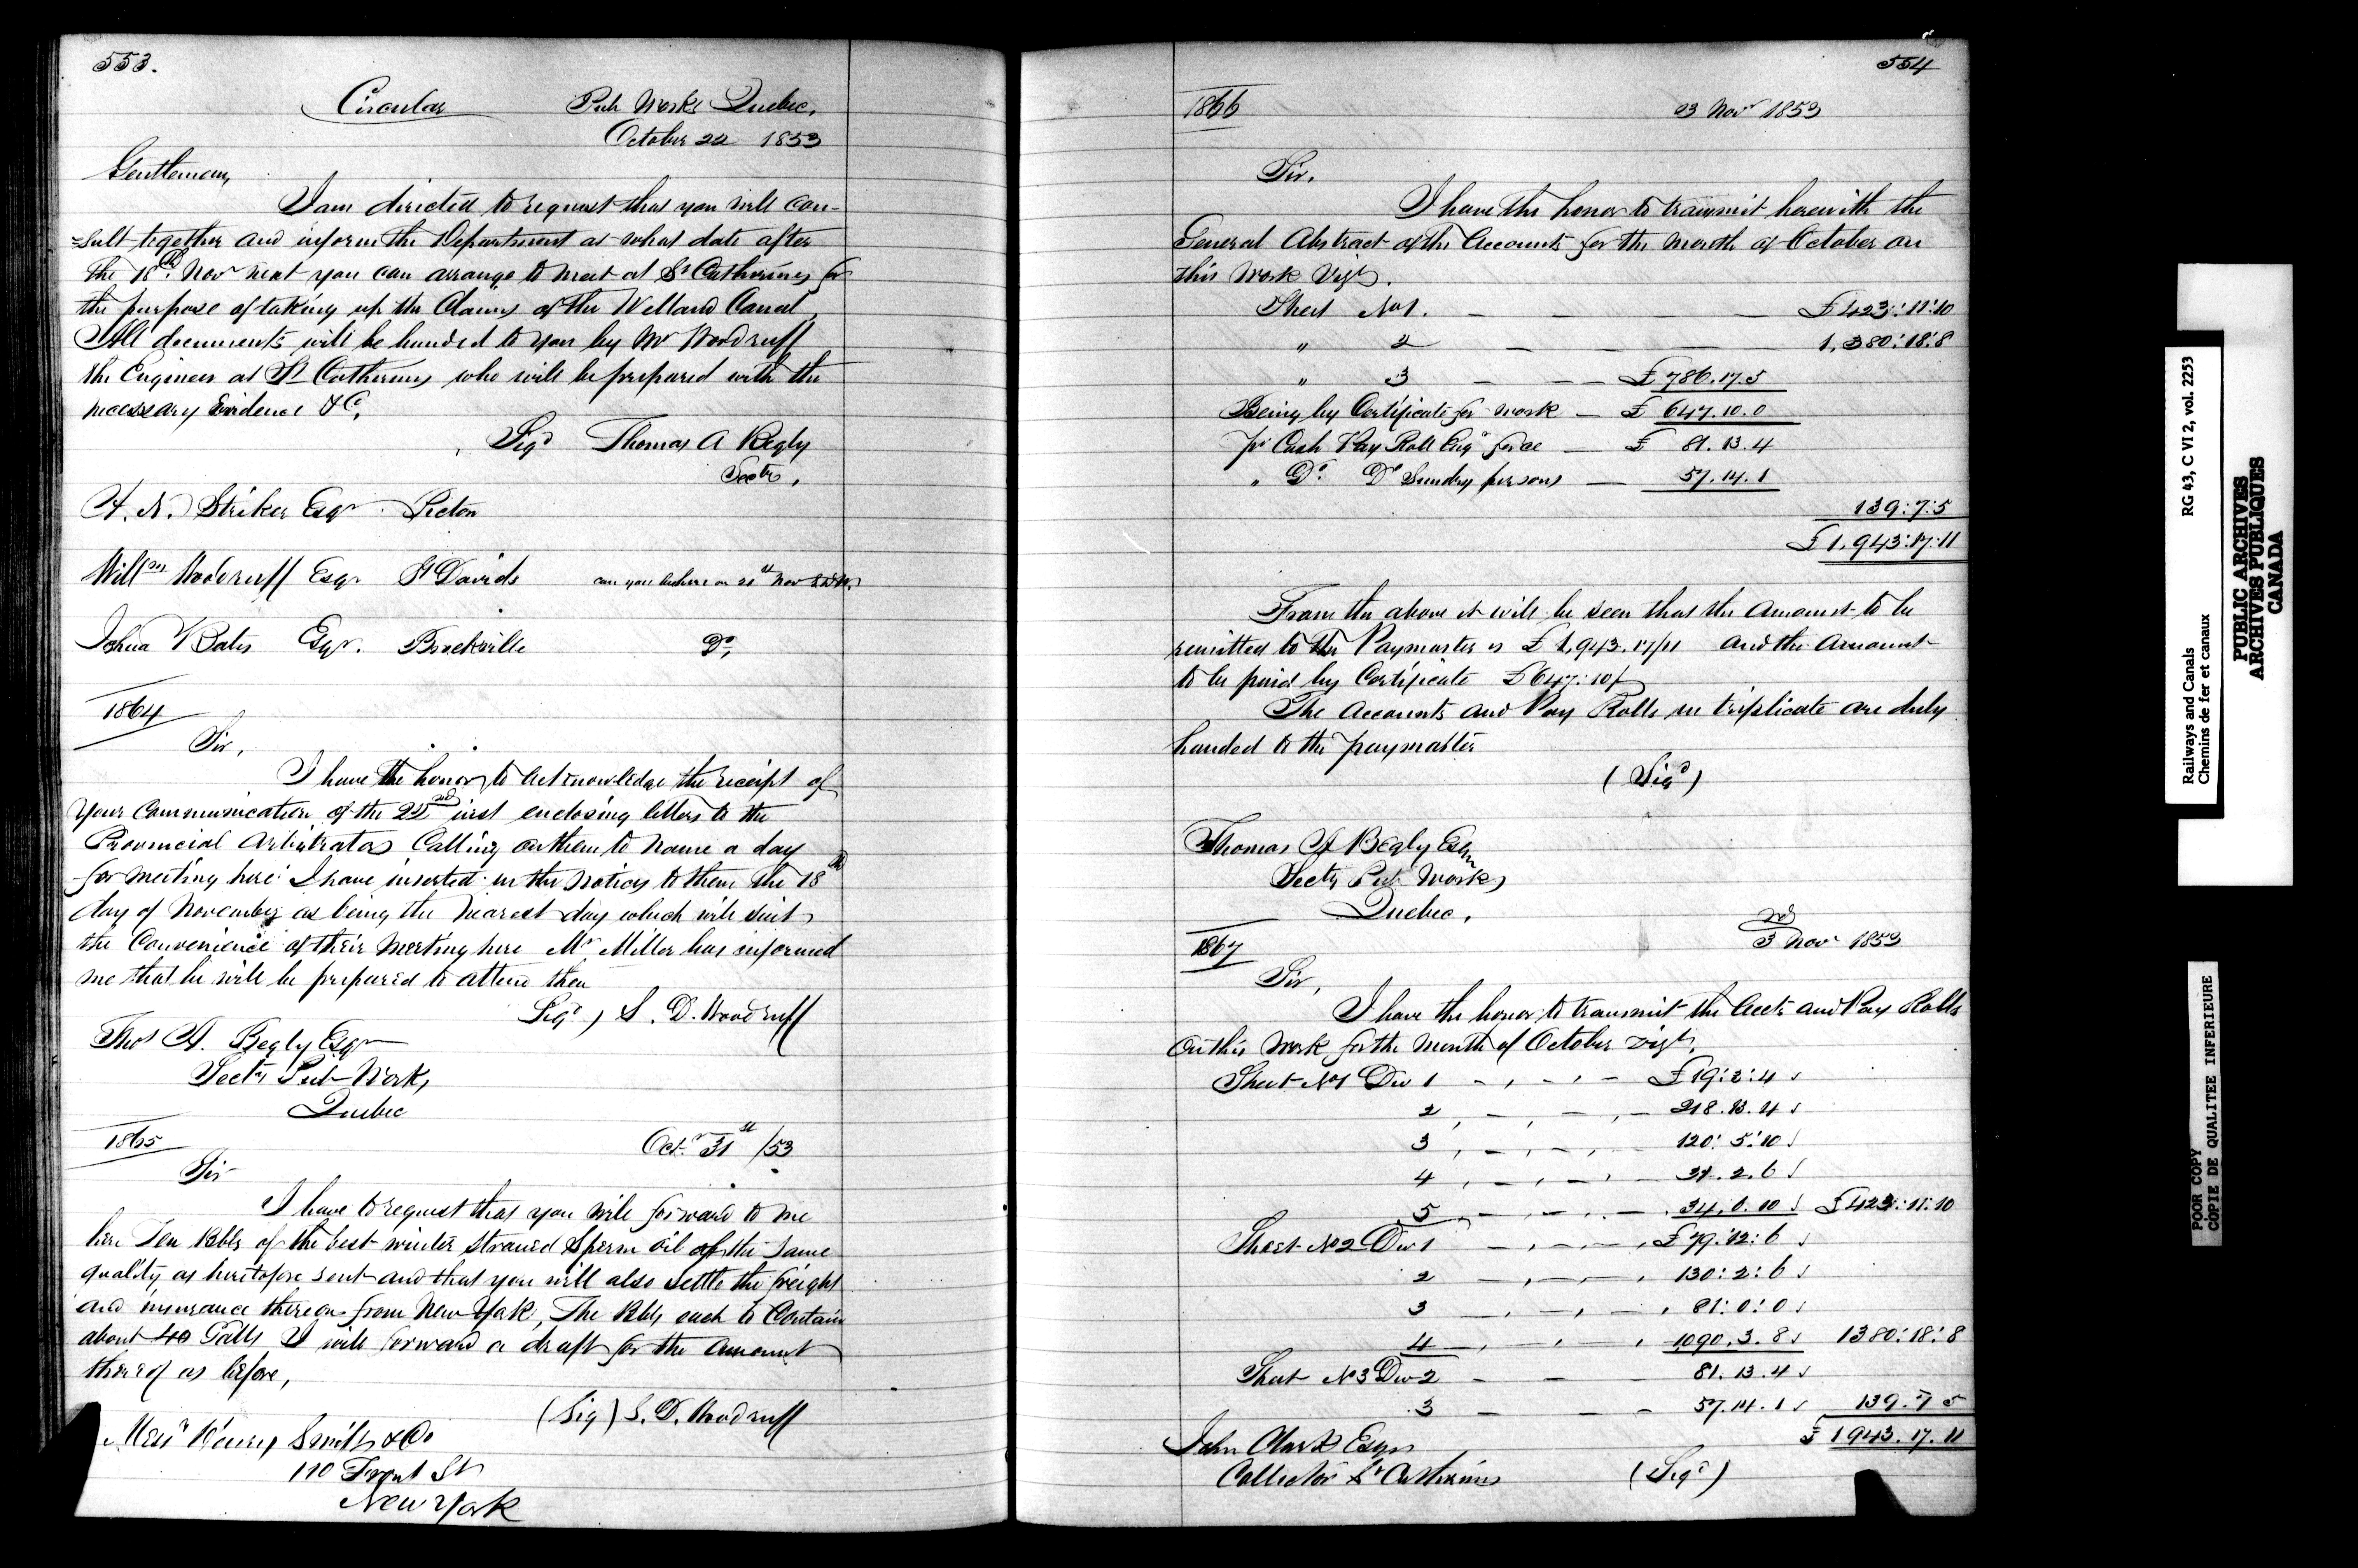 553.
Circular Pub Works Quebec,
October 22 1853
Gentlemen,
I am directed to request that you will con-
=sult together and inform the Department at what date after
the 18th. Nov next you can arrange to meet at St Catherines for
the purpose of taking up the Claims of the Welland Canal,
All documents will be handed to you by Mr Woodruff
the Engineer at St Catherines who will be prepared with the
necessary Evidence &C,
Sigd Thomas A Begly
Secty,
Striker Esqr Picton
Willm Woodruff Esqr St Davids can you be here on 21st Nov
Joshua Bates Esqr. Brockville Do,
1864
Sir,
I have the honor to acknowledge the receipt of
your Communication of the 22nd inst enclosing letters to the
Provincial Arbitrators Calling on them to name a day
for meeting here I have inserted in the notices to them the 18th
day of November as being the nearest day which will suit
the Convenience of their meeting here Mr Miller has informed
me that he will be prepared to attend then
Sigd) S. D. Woodruff
Thos A. Begly Esqr
Secty Pub Works,
Quebec
1865 Octr 31st /53
Sir
I have to request that you will forward to me
here Ten Bbls of the best winter strained Sperm oil of the same
quality as heretofore sent and that you will also settle the freight
and insurance thereon from New York, The Bbls each to Contain
about 40 Galls I will forward a draft for the amount
thereof as before,
(Sig) S. D. Woodruff
Messrs Henry Smith & Co
110 Front St
New York
554
1866 3 Novr 1853
Sir.
I have the honor to transmit herewith the
General Abstract of the Accounts for the month of October on
this Work Vizt.
Sheet No 1. — — — £423:11:10
" 2 — — — 1,380:18:8
" 3 — — — £786.17.5
Being by Certificate for work — £ 647.10.0
pr Cash Pay Roll Engr force — £ 81.13.4
" Do. Do Sundry persons — 57.14.1
139:7:5
£1,943:17:11
From the above it will be seen that the amount to be
remitted to the Paymaster is £1,943.17/11 and the amount
to be paid by Certificate £647:10/
The Accounts and Pay Rolls in triplicate are duly
handed to the paymaster
(Sigd)
Thomas A Begly Esqr
Secty Pub Works
Quebec,
1867 3rd Novr 1853
Sir,
I have the honor to transmit the Accts and Pay Rolls
on this work for the month of October vizt,
Sheet No 1 Div 1 £19:3:4
2 218.13.4
3 120:5:10
4 31.2.6
5 34.0.10 £423:11:10
Sheet No 2 Div 1 £79:12:6
2 130:2:6
3 81:0:0
4 1090.3.8 1380:18:8
Sheet No 3 Div 2 81.13.4
3 57.14.1 139.7.5
£1943.17.11
John Clark Esqr
Collector St Catherines (Sigd)
RG 43, C VI 2, vol. 2253
Railways and Canals
Chemins de fer et canaux
PUBLIC ARCHIVES
ARCHIVES PUBLIQUES
CANADA
POOR COPY
COPIE DE QUALITEE INFERIEURE